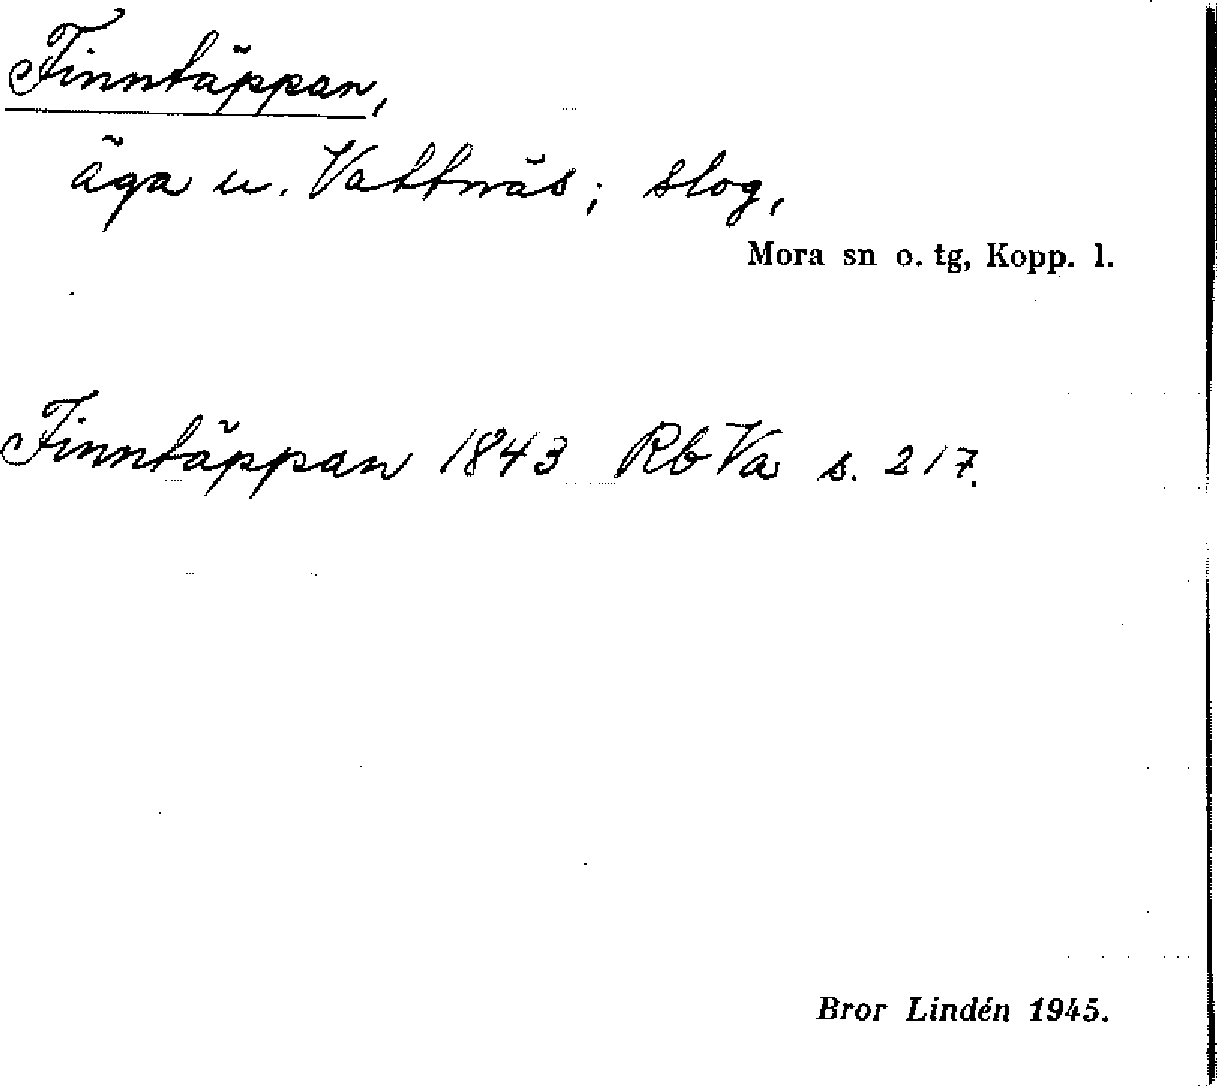 Finntäppan,
äga u. Vattnäs; slog,
Mora sn o. tg, Kopp. l.
Finntäppan 1843 Rb Va s. 217.
Bror Lindén 1945.